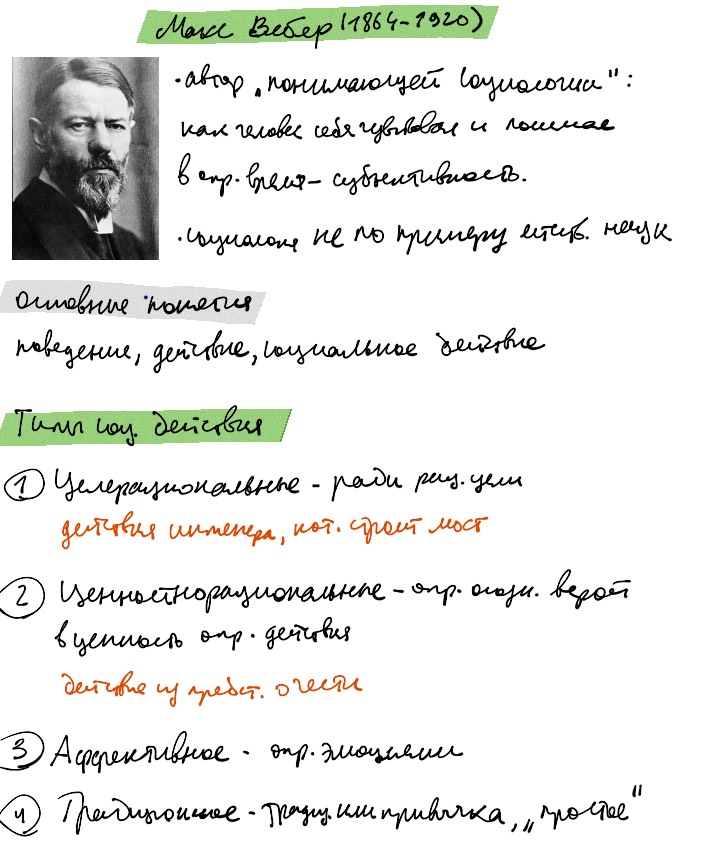 Макс Вебер (1864-1920)
· автор „понимающей социологии":
как человек себя чувствовал и понимал
в опр. время - субъективность.
· социология не по примеру естеств. наук
основные понятия
поведение, действие, социальное действие
Типы соц. действия
1 Целерациональные - ради рац. цели
действия инженера, кот. строит мост
2 Ценностнорациональные - опр. осозн. верой
в ценность опр. действия
действие из предст. о чести
3 Аффективное - опр. эмоциями
4 Традиционное - традиц. или привычка, „простое"